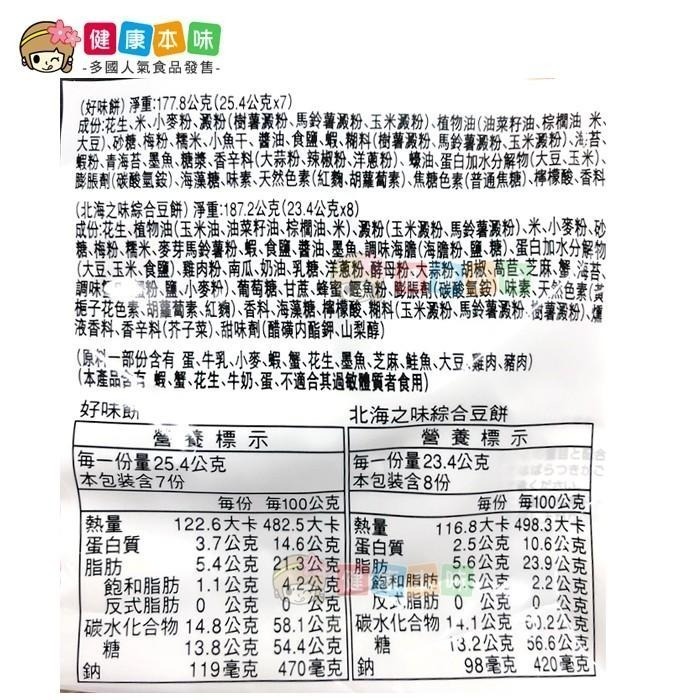 健康本味
-多國人氣食品發售-
(好味餅) 淨重:177.8公克(25.4公克x7)
成份:花生、米、小麥粉、澱粉(樹薯澱粉、馬鈴薯澱粉、玉米澱粉)、植物油(油菜籽油、棕櫚油、米、
大豆)、砂糖、梅粉、糯米、小魚干、醬油、食鹽、蝦、糊料(樹薯澱粉、馬鈴薯澱粉、玉米澱粉)、海苔、
蝦粉、青海苔、墨魚、糖漿、香辛料(大蒜粉、辣椒粉、洋蔥粉)、蠔油、蛋白加水分解物(大豆、玉米)、
膨脹劑(碳酸氫銨)、海藻糖、味素、天然色素(紅麴、胡蘿蔔素)、焦糖色素(普通焦糖)、檸檬酸、香料
(北海之味綜合豆餅) 淨重:187.2公克(23.4公克x8)
成份:花生、植物油(玉米油、油菜籽油、棕櫚油、米)、澱粉(玉米澱粉、馬鈴薯澱粉)、米、小麥粉、砂
糖、梅粉、糯米、麥芽馬鈴薯澱粉、蝦、食鹽、醬油、墨魚、調味海膽(海膽粉、鹽、糖)、蛋白加水分解物
(大豆、玉米、食鹽)、雞肉粉、南瓜、奶油、乳糖、洋蔥粉、酵母粉、大蒜粉、胡椒、萵苣、芝麻、蟹、海苔、
調味 粉、鹽、小麥粉)、葡萄糖、甘蔗、蜂蜜、鰹魚粉、膨脹劑(碳酸氫銨)、味素、天然色素(黃
梔子花色素、胡蘿蔔素、紅麴)、香料、海藻糖、檸檬酸、糊料(玉米澱粉、馬鈴薯澱粉、樹薯澱粉)、燻
液香料、香辛料(芥子菜)、甜味劑(醋磺內酯鉀、山梨醇)
(原料一部份含有 蛋、牛乳、小麥、蝦、蟹、花生、墨魚、芝麻、鮭魚、大豆、雞肉、豬肉)
(本產品含有 蝦、蟹、花生、牛奶、蛋、不適合其過敏體質者食用)
好味餅
營養標示
每一份量25.4公克
本包裝含7份
每份 每100公克
熱量 122.6大卡 482.5大卡
蛋白質 3.7公克 14.6公克
脂肪 5.4公克 21.3公克
飽和脂肪 1.1公克 4.2公克
反式脂肪 0 公克 0 公克
碳水化合物 14.8公克 58.1公克
糖 13.8公克 54.4公克
鈉 119毫克 470毫克
北海之味綜合豆餅
營養標示
每一份量23.4公克
本包裝含8份
每份 每100公克
熱量 116.8大卡 498.3大卡
蛋白質 2.5公克 10.6公克
脂肪 5.6公克 23.9公克
飽和脂肪 0.5公克 2.2公克
反式脂肪 0 公克 0 公克
碳水化合物 14.1公克 60.2公克
糖 13.2公克 56.6公克
鈉 98毫克 420毫克
健康本味